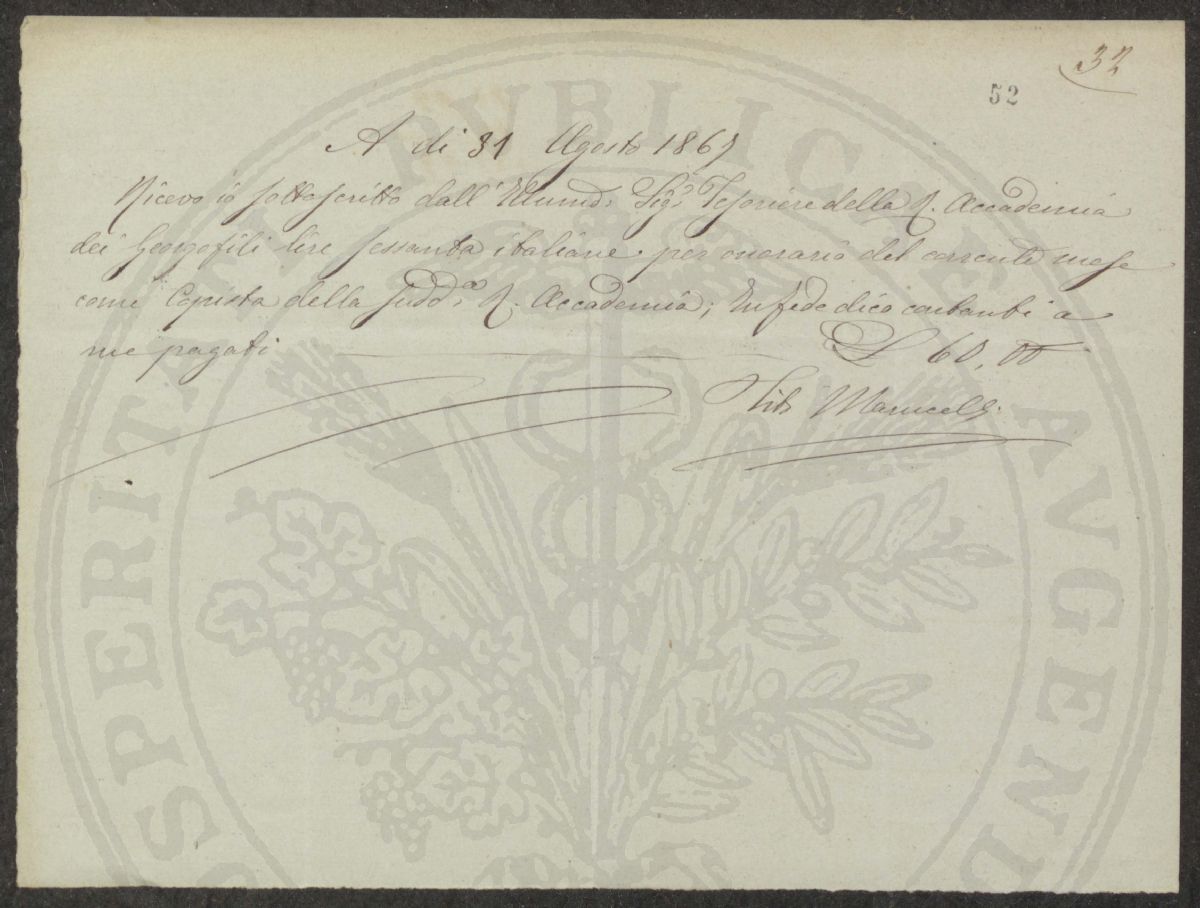 32
52
A di 31 Agosto 1867
Ricevo io sottoscritto dall' Sigr Tesoriere della R. Accademia
dei Georgofili lire sessanta italiane per onorario del corrente mese
come Copista della sudda R. Accademia; In fede dico contanti a
me pagati L 60,00
PROSPERITATI PVBLICAE AVGENDAE